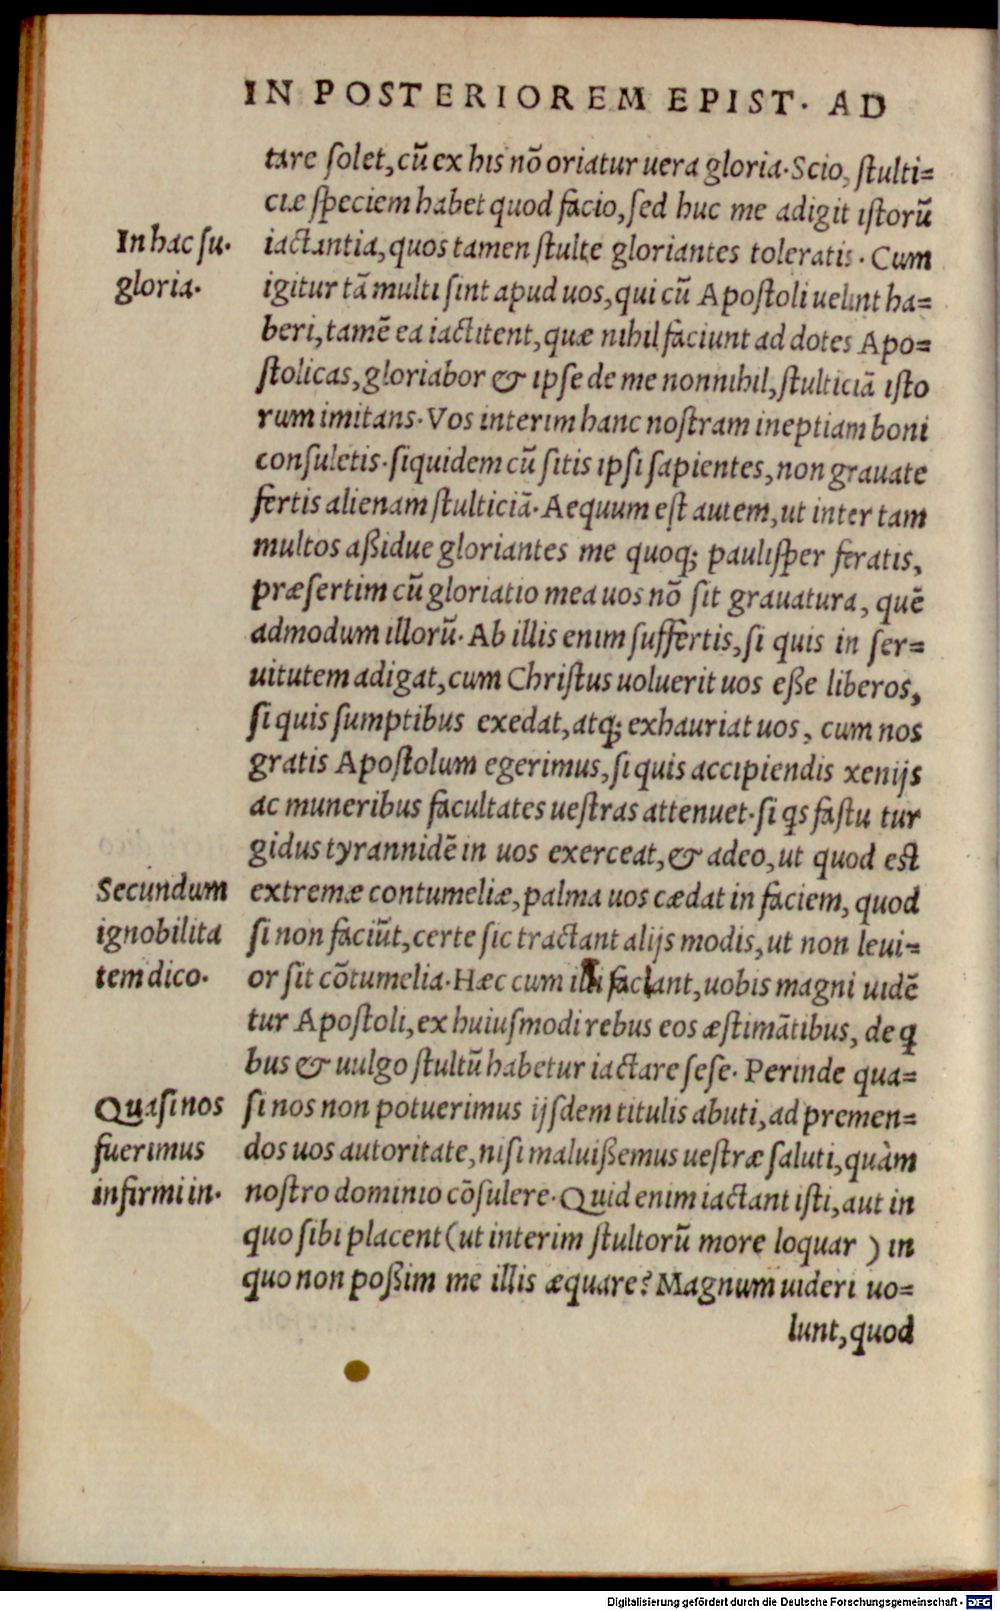 IN POSTERIOREM EPIST. AD
tare ſolet, cū ex his nō oriatur uera gloria. Scio, ſtulti=
ciæ ſpeciem habet quod facio, ſed huc me adigit iſtorū
In hac ſu.
gloria.
iactantia, quos tamen ſtulte gloriantes toleratis. Cum
igitur tā multi ſint apud uos, qui cū Apoſtoli uelint ha=
beri, tamē ea iactitent, quæ nihil faciunt ad dotes Apo=
ſtolicas, gloriabor & ipſe de me nonnihil, ſtulticiā iſto
rum imitans. Vos interim hanc noſtram ineptiam boni
conſuletis. ſiquidem cū ſitis ipſi ſapientes, non grauate
fertis alienam ſtulticiā. Aequum eſt autem, ut inter tam
multos aßidue gloriantes me quoq; pauliſper feratis,
præſertim cū gloriatio mea uos nō ſit grauatura, quē
admodum illorū. Ab illis enim ſuffertis, ſi quis in ſer=
uitutem adigat, cum Chriſtus uoluerit uos eße liberos,
ſi quis ſumptibus exedat, atq; exhauriat uos, cum nos
gratis Apoſtolum egerimus, ſi quis accipiendis xenijs
ac muneribus facultates ueſtras attenuet. ſi qs faſtu tur
gidus tyrannidē in uos exerceat, & adeo, ut quod eſt
Secundum
ignobilita
tem dico.
extremæ contumeliæ, palma uos cædat in faciem, quod
ſi non faciūt, certe ſic tractant alijs modis, ut non leui=
or ſit cōtumelia. Hæc cum illi faciant, uobis magni uidē
tur Apoſtoli, ex huiuſmodi rebus eos æſtimātibus, de q
bus & uulgo ſtultū habetur iactare ſeſe. Perinde qua=
Quaſi nos
fuerimus
infirmi in.
ſi nos non potuerimus ijſdem titulis abuti, ad premen=
dos uos autoritate, niſi maluißemus ueſtræ ſaluti, quàm
noſtro dominio cōſulere. Quid enim iactant iſti, aut in
quo ſibi placent (ut interim ſtultorū more loquar ) in
quo non poßim me illis æquare? Magnum uideri uo=
lunt, quod
Digitalisierung gefördert durch die Deutsche Forschungsgemeinschaft - DFG